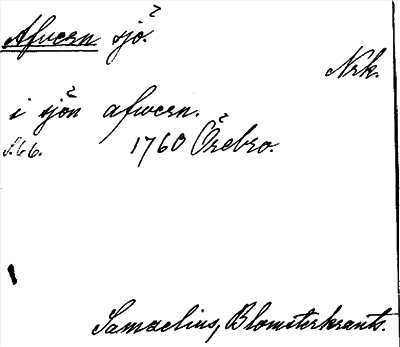 Afvern sjö.
Nrk.
i sjön afwern.
s. 66. 1760 Örebro.
Samzelius, Blomsterkrants.